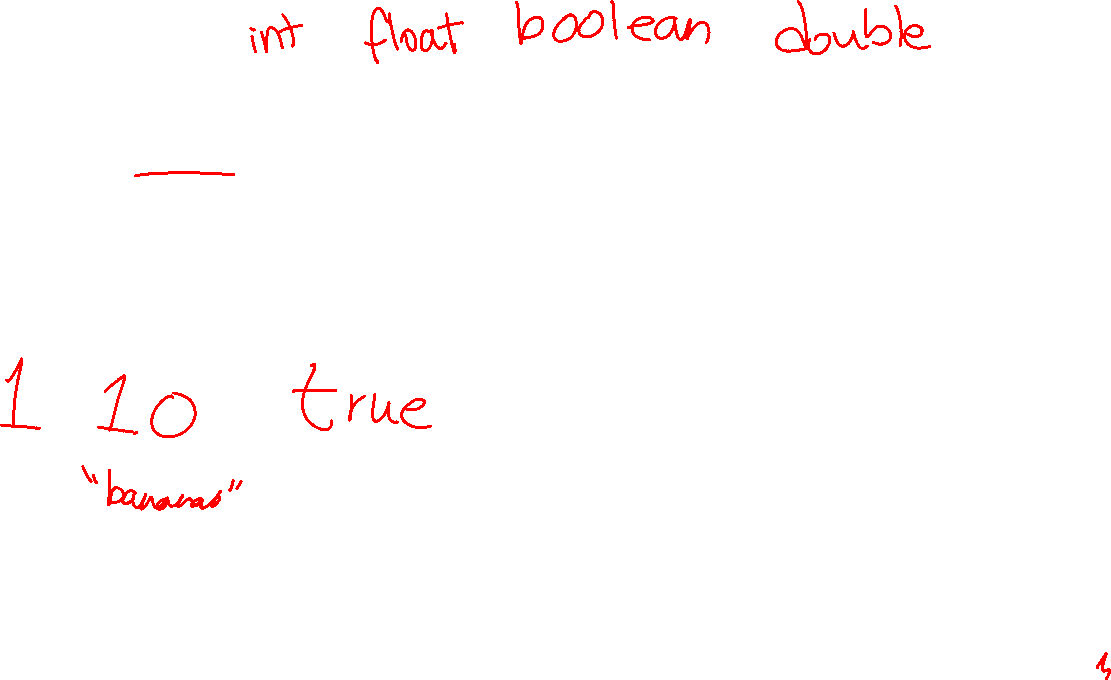 int float boolean double
1 10 true
"bananas"